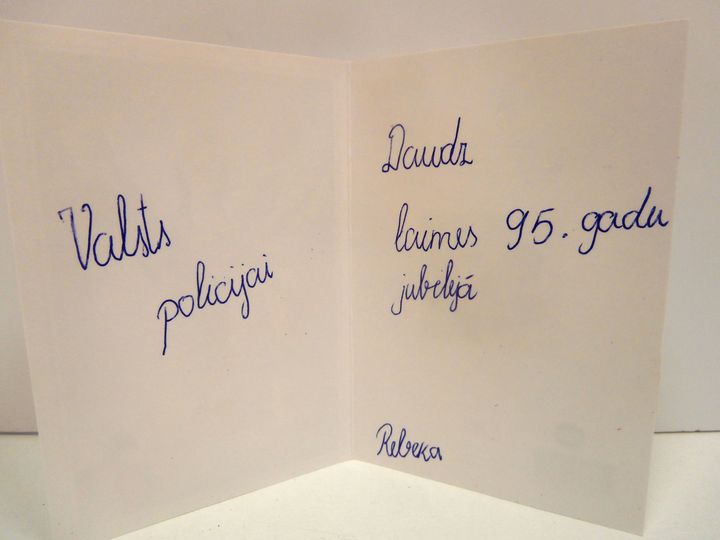 Valsts
policijai
Daudz
laimes 95. gadu
jubilejā
Rebeka